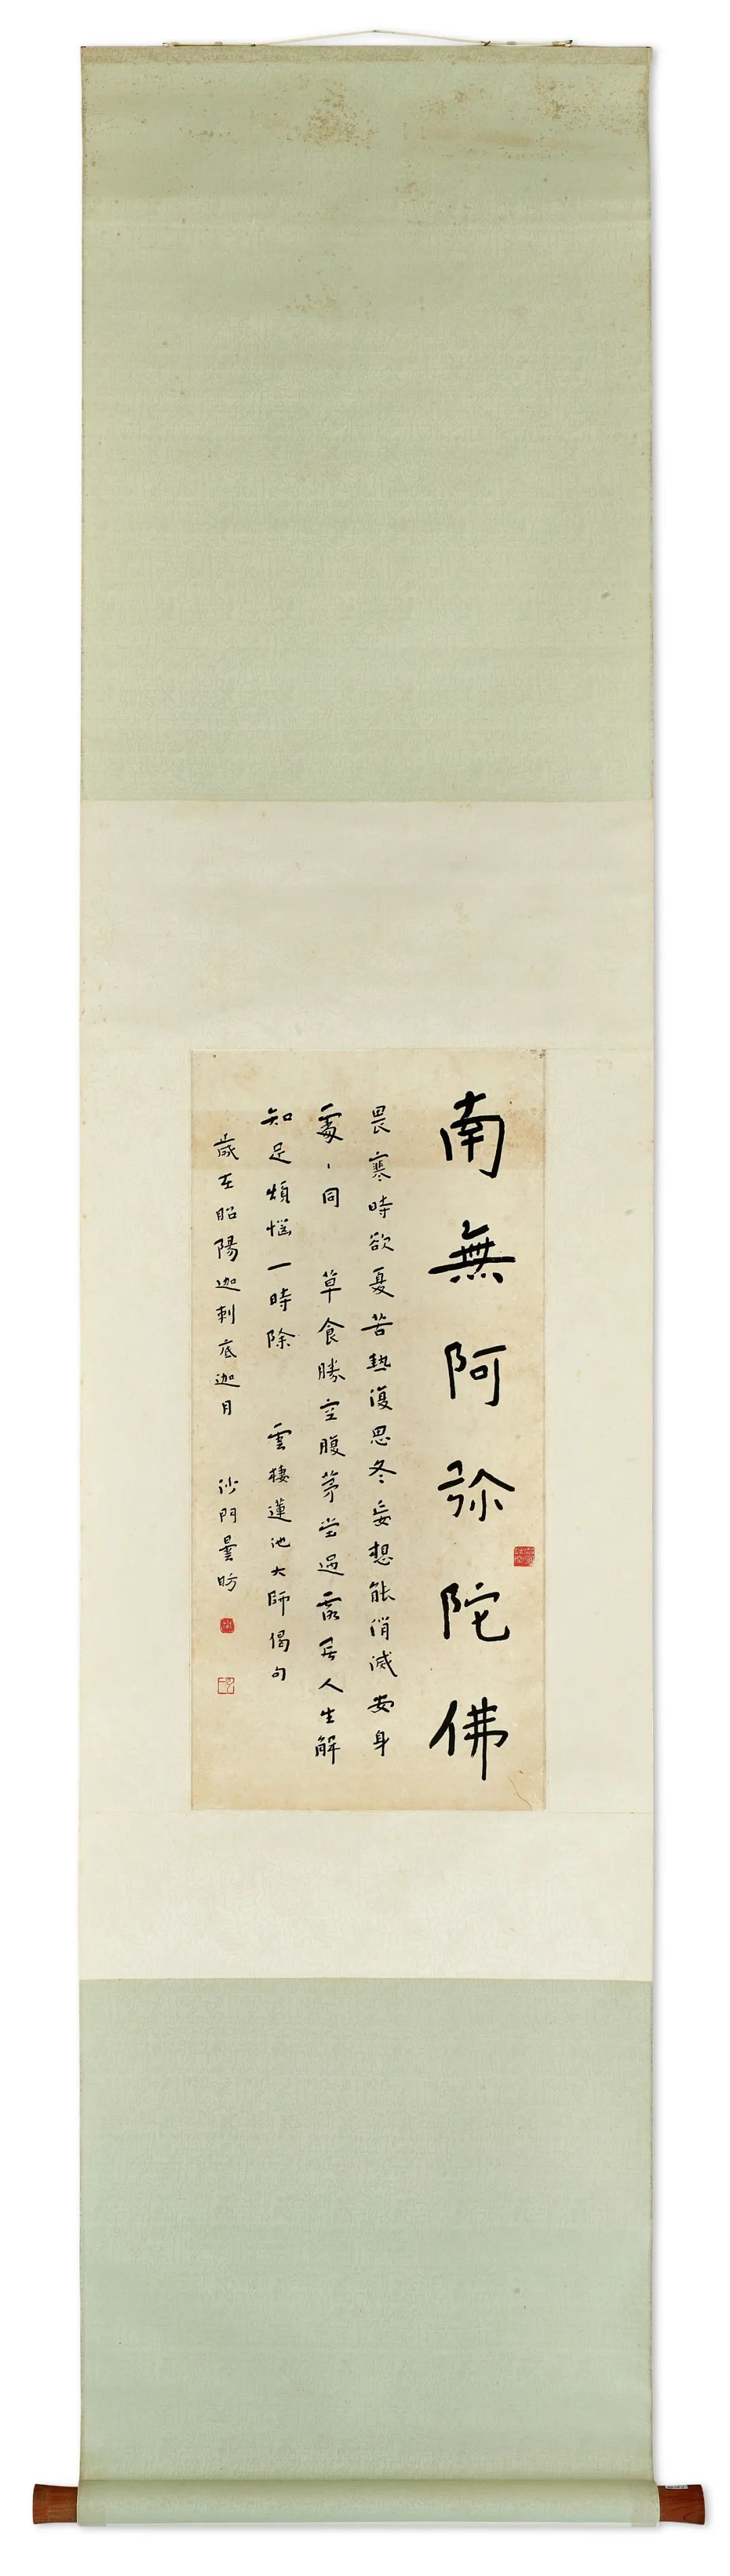 南無阿弥陀佛
畏寒時欲夏苦熱復思冬妄想能消滅安身
處、同 草食勝空腹茅堂過露居人生解
知足煩惱一時除 雲棲蓮池大師偈句
歲在昭陽迦刺底迦月 沙門曇昉